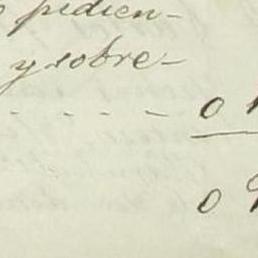 pedien-
y sobre-
- - - - 0
0